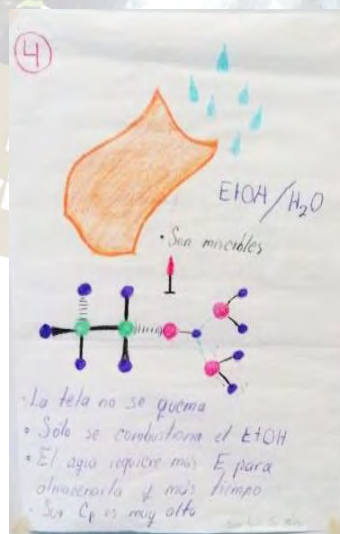 4
EtOH/H₂O
• Son miscibles
• La tela no se quema
• Sólo se combustiona el EtOH
• El agua requiere más E para
almacenarla y más tiempo
• Su Cp es muy alto